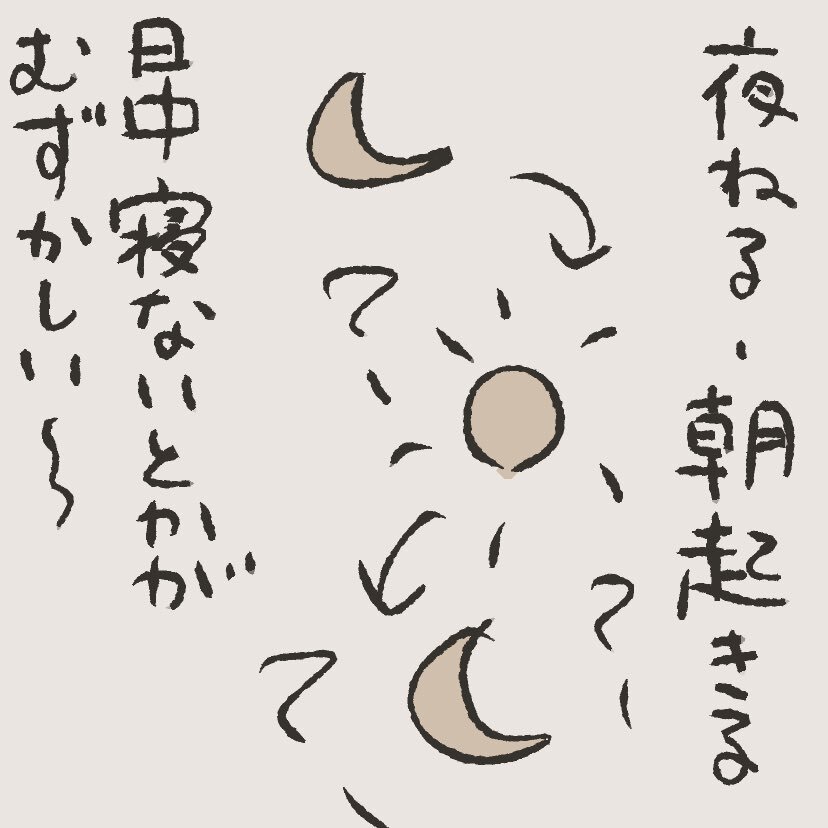 夜ねる、朝起きる
?
?
?
日中寝ないとかが
むずかしい〜